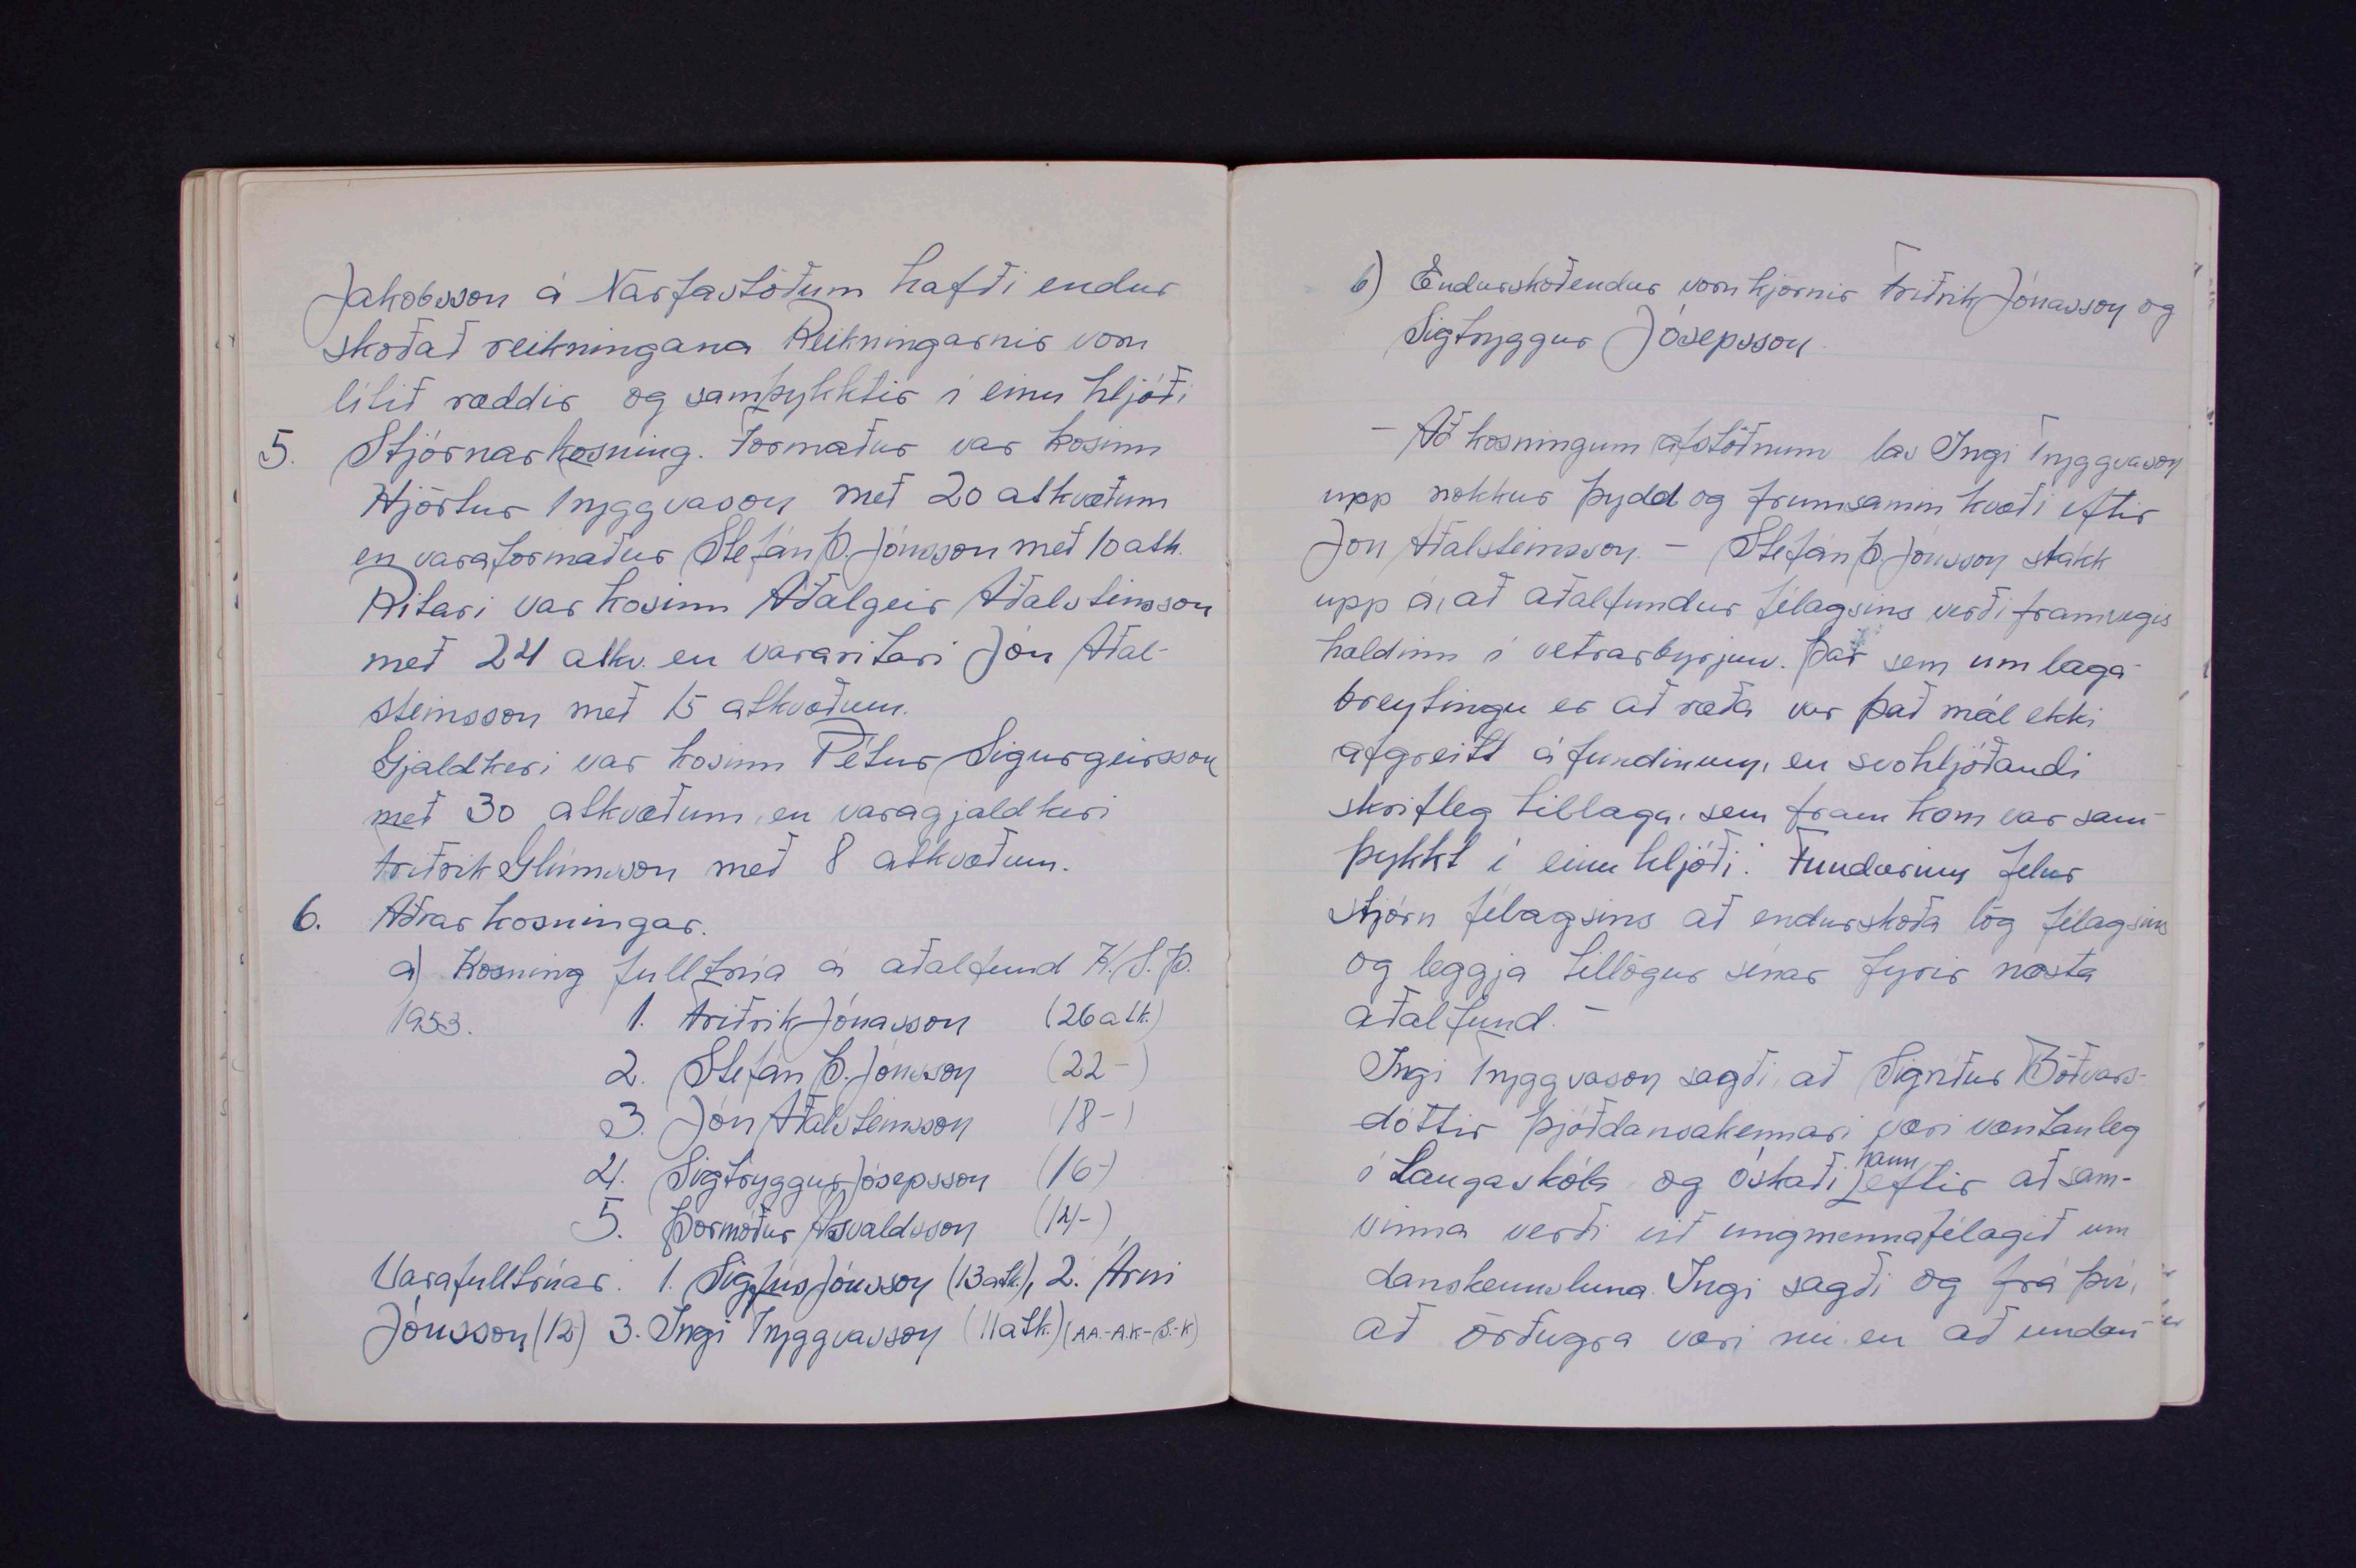 Jakobsson á Narfastöðum hafði endur
skoðað reikningana Reikningarnir voru
lítið ræddir og samþykktir í einu hljóði
5. Stjórnarkosning. Formaður var kosinn
Hjörtur Tryggvason með 20 atkvæðum
en varaformaður Stefán Þ. Jónsson með 10 atk.
Ritari var kosinn Aðalgeir Aðalsteinsson
með 24 atkv. en vararitari Jón Aðal-
steinsson með 15 atkvæðum.
Gjaldkeri var kosinn Pétur Sigurgeirsson
með 30 atkvæðum, en varagjaldkeri
Friðrik Glúmsson með 8 atkvæðum.
6. Aðrar kosningar.
a) Kosning fulltrúa á aðalfund H.S.Þ.
1953. 1. Friðrik Jónasson (26 atk.)
2. Stefán Þ. Jónsson (22-)
3. Jón Aðalsteinsson (18-)
4. Sigtryggur Jósepsson (16-)
5. Þormóður Ásvaldsson (14-)
Varafulltrúar: 1. Sigfús Jónsson (13 atk.), 2. Árni
Jónsson (12) 3. Ingi Tryggvasson (11 atk.) (AA.-A.K-S.-K)
b) Endurskoðendur voru kjörnir Friðrik Jónasson og
Sigtryggur Jósepsson.
- Að kosningum afstöðnum las Ingi Tryggvason
upp nokkur þydd og frumsamin kvæði eftir
Jón Aðalsteinsson. - Stefán Þ. Jónsson stakk
upp á, að aðalfundur félagsins verði framvegis
haldinn í vetrarbyrjun. Þar sem um laga-
breytingu er að ræða var það mál ekki
afgreitt á fundinum, en svohljóðandi
skrifleg tillaga, sem fram kom var sam-
þykkt í einu hljóði: Fundurinn felur
stjórn félagsins að endurskoða lög félagsins
og leggja tillögur sínar fyrir næsta
aðalfund. -
Ingi Tryggvason sagði, að Sigríður Böðvars-
dóttir þjóðdansakennari væri væntanleg
í Laugaskóla og óskaði hann eftir að sam-
vinna verði við ungmennafélagið um
danskennsluna. Ingi sagði og frá því,
að örðugra væri nú en að undan-